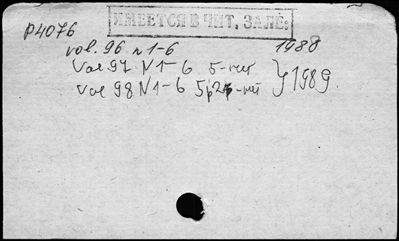 ИМЕЕТСЯ В ЧИТ. ЗАЛЕ:
P4076
vol. 96 N 1-6 1988
Vol 97 N 1-6 5-чит } 1989
Vol 98 N 1-6